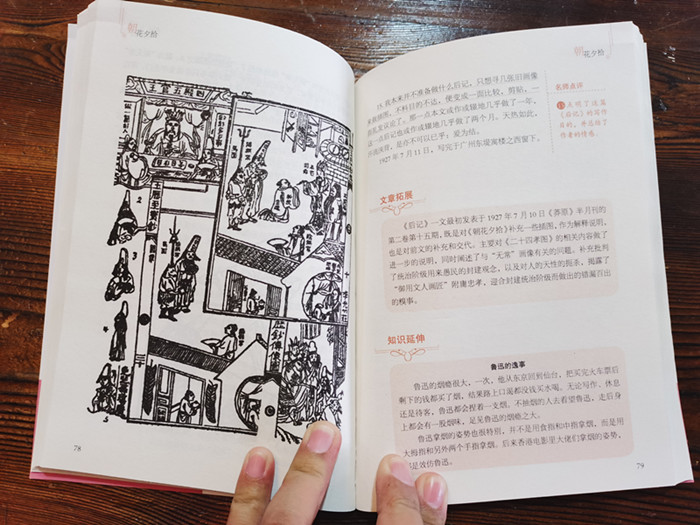 朝花夕拾
王官五殿四
2
3
5
78
朝花夕拾
15.我本来并不准备做什么后记,只想寻几张旧画像
来做插图,不料目的不达,便变成一面比较,剪贴,一
面乱发议论了。那一点本文或作或辍地几乎做了一年,
这一点后记也或作或辍地几乎做了两个月。天热如此,
汗流浃背,是亦不可以已乎:爰为结。
1927年7月11日,写完于广州东堤寓楼之西窗下。
名师点评
⑮点明了这篇
《后记》的写作
目的,并总结了
作者的情感。
文章拓展
《后记》一文最初发表于1927年7月10日《莽原》半月刊的
第二卷第十五期,既是对《朝花夕拾》补充一些插图,作为解释说明,
也是对前文的补充和交代。主要对《二十四孝图》的相关内容做了
进一步的说明,同时阐述了与“无常”画像有关的问题。补充批判
了统治阶级用来愚民的封建观念,以及对人的天性的扼杀,揭露了
“御用文人画匠”附庸忠孝,迎合封建统治阶级而做出的错漏百出
的糗事。
知识延伸
鲁迅的逸事
鲁迅的烟瘾很大,一次,他从东京回到仙台,把买完火车票后
剩下的钱都买了烟,结果路上口渴都没钱买水喝。无论写作、休息
还是待客,鲁迅都会捏着一支烟。不抽烟的人去看望鲁迅,走后身
上都会有一股烟味,足见鲁迅的烟瘾之大。
鲁迅拿烟的姿势也很特别,并不是用食指和中指拿烟,而是用
大拇指和另外两个手指拿烟。后来香港电影里大佬们拿烟的姿势,
都是效仿鲁迅。
79